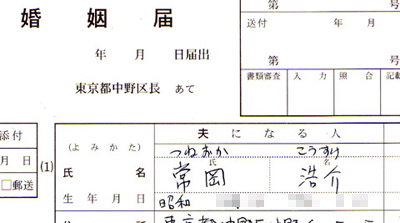 婚姻届
年 月 日届出
東京都中野区長 あて
第 号
送付 年 月
第 号
書類審査 入力 照合 記載
添付
月 日
□郵送
(1)
夫になる人
(よみかた) つねおか こうすけ
氏 名
氏名 常岡 浩介
生年月日 昭和
東京都中野区